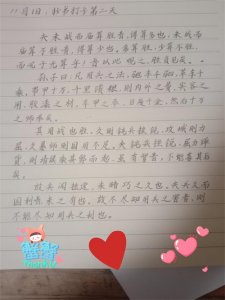 11月1日，抄书打卡第二天
夫未战而庙算胜者，得算多也；未战而
庙算不胜者，得算少也。多算胜，少算不胜，
而况于无算乎！吾以此观之，胜负见矣。
孙子曰：凡用兵之法，驰车千驷，革车千
乘，带甲十万，千里馈粮，则内外之费，宾客之
用，胶漆之材，车甲之奉，日费千金，然后十万
之师举矣。
其用战也胜，久则钝兵挫锐，攻城则力
屈，久暴师则国用不足。夫钝兵挫锐，屈力殚
货，则诸侯乘其弊而起，虽有智者，不能善其后
矣。
故兵闻拙速，未睹巧之久也。夫兵久而
国利者，未之有也。故不尽知用兵之害者，则
不能尽知用兵之利也。